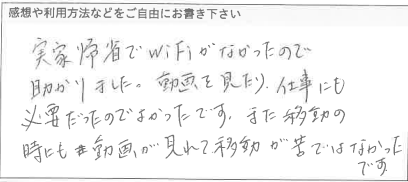 感想や利用方法などをご自由にお書き下さい
実家帰省でWiFiがなかったので
助かりました。動画を見たり、仕事にも
必要だったのでよかったです。また移動の
時にも動画が見れて移動が苦ではなかった
です